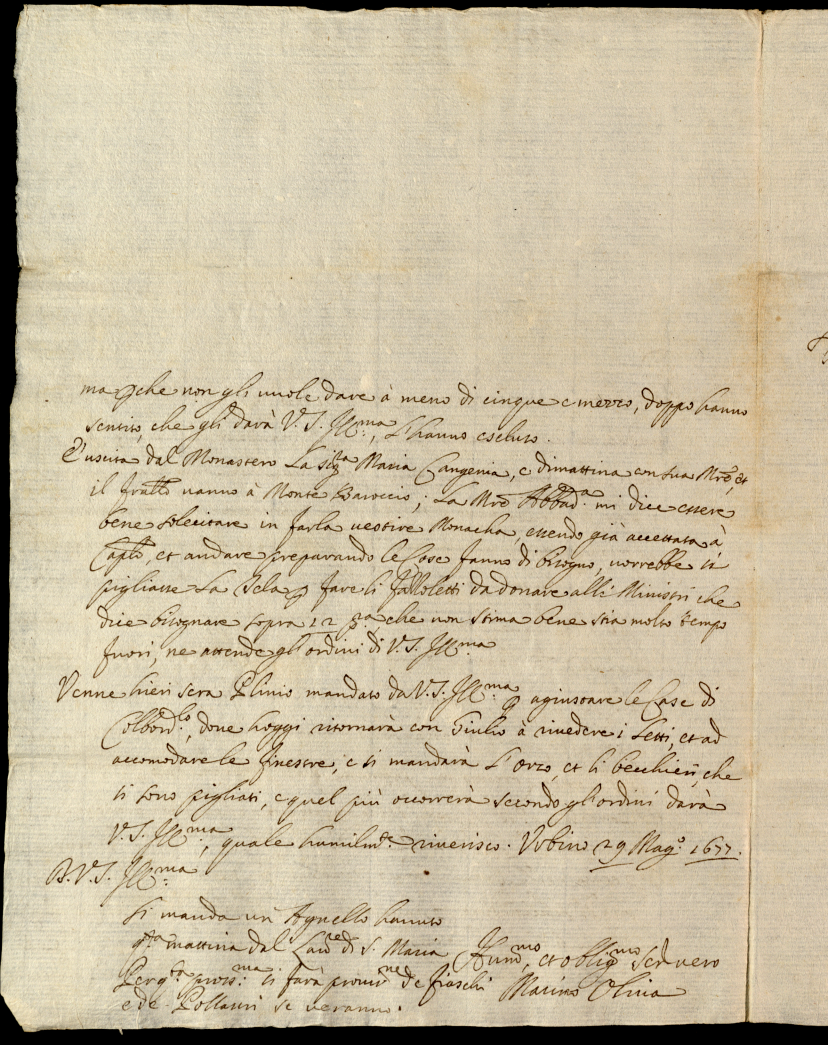 ma perche non gli vuole dare à meno di cinque e mezzo, doppo hanno
sentito, che gli darà V. S. Ill.ma, l'hanno escluso.
È uscita dal Monastero la Sig.ra Maria Cangenia, e dimattina con sua Mre, et
il fratello vanno à Monte Baroccio; la Mre Abbad.a mi dice essere
bene solecitare in farla vestire Monacha, essendo già accettata à
Caplo, et andare preparando le Cose fanno di bisogno, vorrebbe si
pigliasse la tela p fare li fazzoletti da donare alli Ministri che
dice bisognare sopra 12 che non stima bene stia molto tempo
fuori, ne attende gl'ordini di V. S. Ill.ma
Venne hieri sera Plinio mandato da V. S. Ill.ma p agiustare le Case di
Colbord.lo, dove hoggi ritornarà con Giulio à rivedere i Letti, et ad
accomodare le finestre, e si mandarà l'orzo, et li becchieri, che
si sono pigliati, e quel più occorrerà secondo gl'ordini darà
V. S. Ill.ma, quale humilm.te riverisco. Urbino 29 Mag.o 1677.
D. V. S. Ill.ma
Si manda un Agnello hauuto
q.ta mattina dal Lau.re di S. Maria
Hum.mo, et oblig.mo Ser. vero
pross.ma si farà provis.ne de fraschi
Marino Oliva
e de Pollastri se veranno.